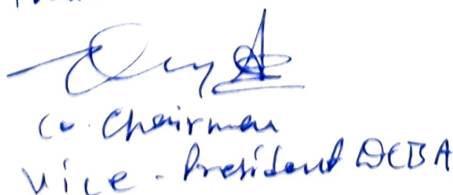 Co. Chairman
Vice - President DCBA